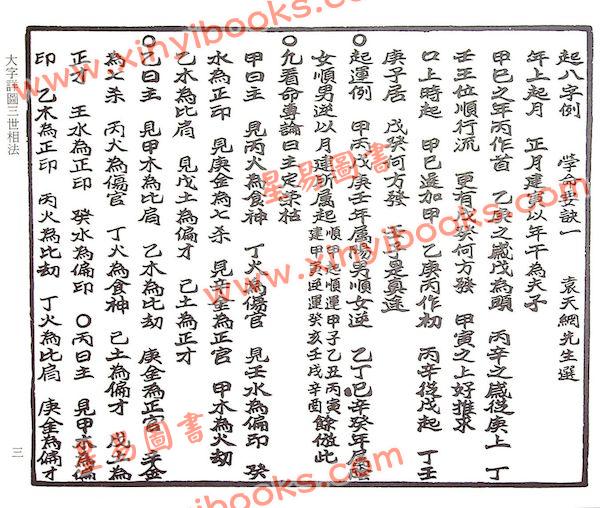 起八字例 學命要訣一 袁天綱先生選
年上起月 正月建寅以年干為夫子
甲巳之年丙作首 乙庚之歲戊為頭 丙辛之歲從庚上 丁
壬壬位順行流 更有戊癸何方發 甲寅之上好推求
口上時起 甲巳還加甲 乙庚丙作初 丙辛從戊起 丁壬
庚子居 戊癸何方發 壬子是真途
〇起運例 甲丙戊庚壬年屬陽男順女逆 乙丁巳辛癸年屬陰
女順男逆以月建所屬起 順運甲子乙丑丙寅
建甲寅逆運癸亥壬戌辛酉 餘倣此
〇凡看命專論日主定榮枯
甲日主 見丙火為食神 丁火為傷官 見壬水為偏印 癸
水為正印 見庚金為七杀 見辛金為正官 甲木為火劫
乙木為比肩 見戊土為偏才 己土為正才
〇乙日主 見甲木為比肩 乙木為比劫 庚金為正官 辛金
為七杀 丙火為傷官 丁火為食神 己土為偏才 戊土為
正才 壬水為正印 癸水為偏印 〇丙日主 見甲木為偏
印 乙木為正印 丙火為比劫 丁火為比肩 庚金為偏才
大字詳圖三世相法
三
星易圖書
www.xinyibooks.com
星易圖書
www.xinyibooks.com
星易圖書
www.xinyibooks.com